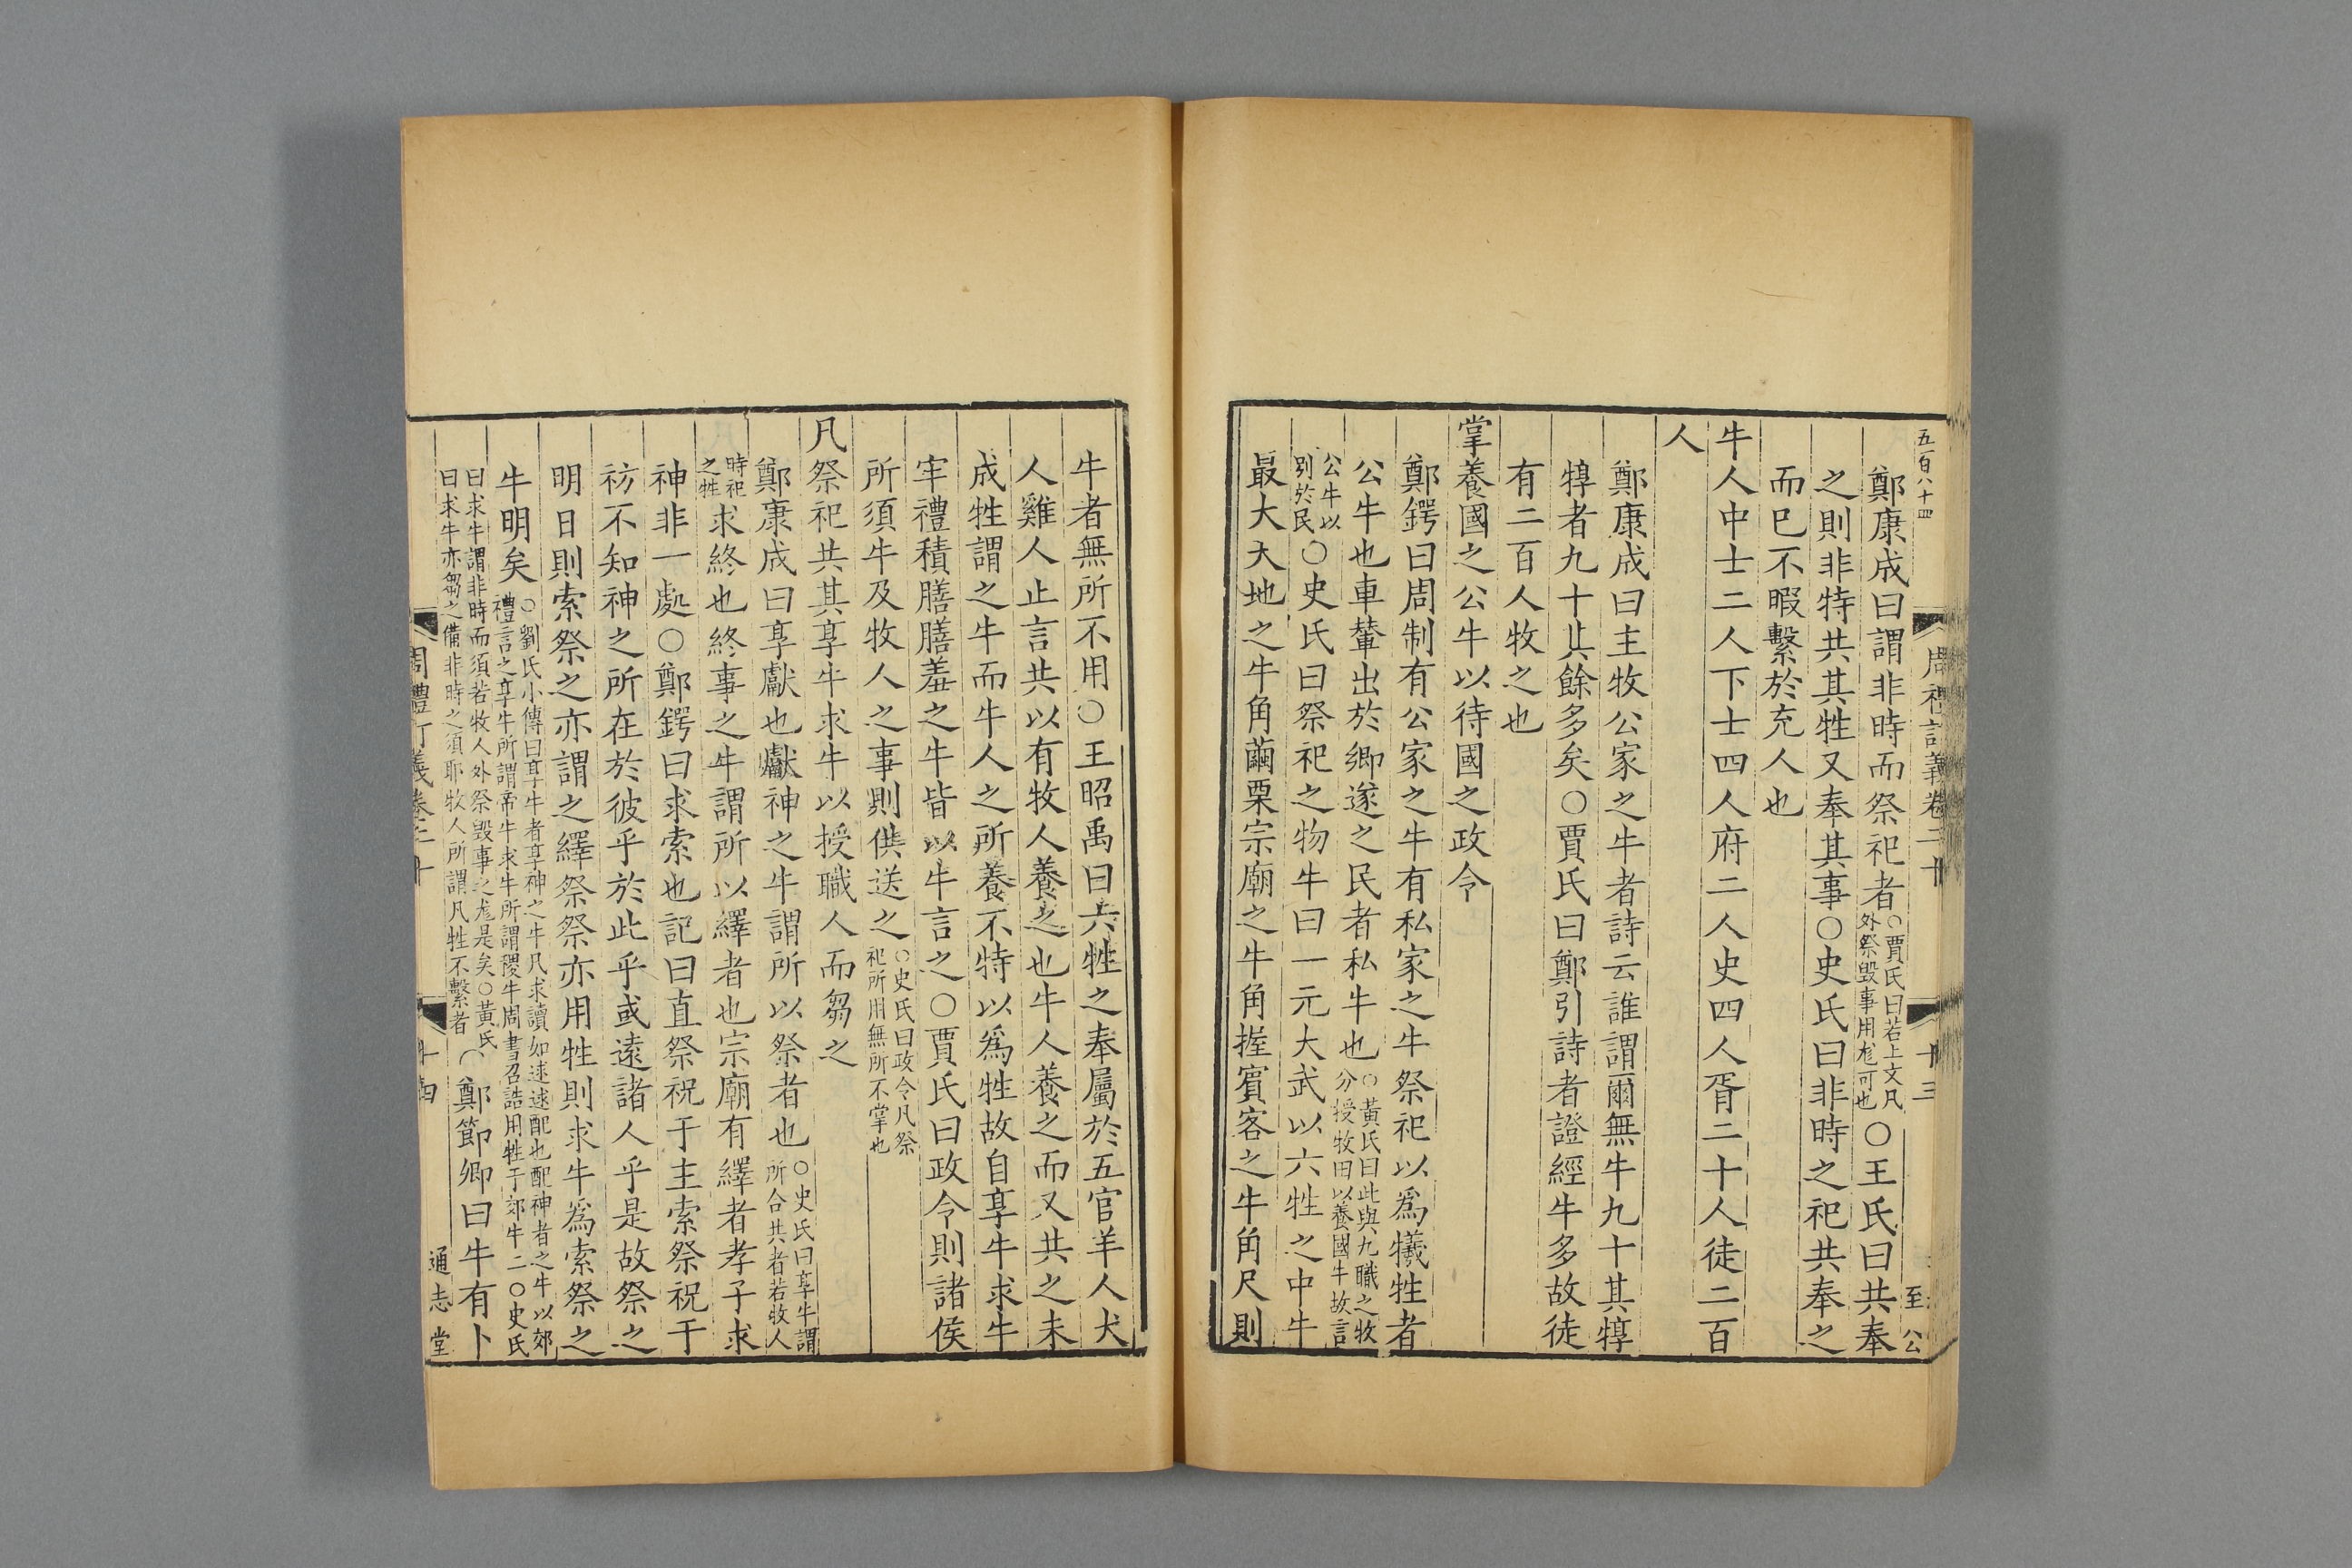 五百八十四
周禮訂義卷二十
十三
至
公
鄭康成曰謂非時而祭祀者○賈氏曰若上文凡外祭毀事用尨可也○王氏曰共奉
之則非特共其牲又奉其事○史氏曰非時之祀共奉之
而已不暇繫於充人也
牛人中士二人下士四人府二人史四人胥二十人徒二百
人
鄭康成曰主牧公家之牛者詩云誰謂爾無牛九十其犉
犉者九十其餘多矣○賈氏曰鄭引詩者證經牛多故徒
有二百人牧之也
掌養國之公牛以待國之政令
鄭鍔曰周制有公家之牛有私家之牛祭祀以為犧牲者
公牛也車輦出於鄉遂之民者私牛也○黃氏曰此與九職之牧分授牧田以養國牛故言
公牛以別於民○史氏曰祭祀之物牛曰一元大武以六牲之中牛
最大天地之牛角繭栗宗廟之牛角握賓客之牛角尺則
牛者無所不用○王昭禹曰六牲之奉屬於五官羊人犬
人雞人止言共以有牧人養之也牛人養之而又共之未
成牲謂之牛而牛人之所養不特以為牲故自享牛求牛
牢禮積膳膳羞之牛皆以牛言之○賈氏曰政令則諸侯
所須牛及牧人之事則供送之○史氏曰政令凡祭祀所用無所不掌也
凡祭祀共其享牛求牛以授職人而芻之
鄭康成曰享獻也獻神之牛謂所以祭者也○史氏曰享牛謂所合共者若牧人
時祀之牲求終也終事之牛謂所以繹者也宗廟有繹者孝子求
神非一處○鄭鍔曰求索也記曰直祭祝于主索祭祝于
祊不知神之所在於彼乎於此乎或遠諸人乎是故祭之
明日則索祭之亦謂之繹祭祭亦用牲則求牛為索祭之
牛明矣○劉氏小傳曰享牛者享神之牛凡求讀如速逑配也配神者之牛以郊禮言之享牛所謂帝牛求牛所謂稷牛周書召誥用牲于郊牛二○史氏
曰求牛謂非時而須若牧人外祭毀事之尨是矣○黃氏曰求牛亦芻之備非時之須耶牧人所謂凡牲不繫者○鄭節卿曰牛有卜
周禮訂義卷二十
十四
通志堂